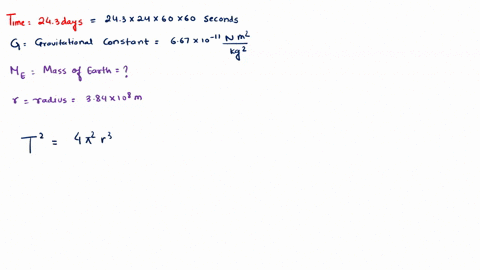 Time: 24.3 days = 24.3 × 24 × 60 × 60 seconds
G = Gravitational Constant = 6.67 × 10⁻¹¹ N m² / kg²
M_E = Mass of Earth = ?
r = radius = 3.84 × 10⁸ m
T² = 4 π² r³